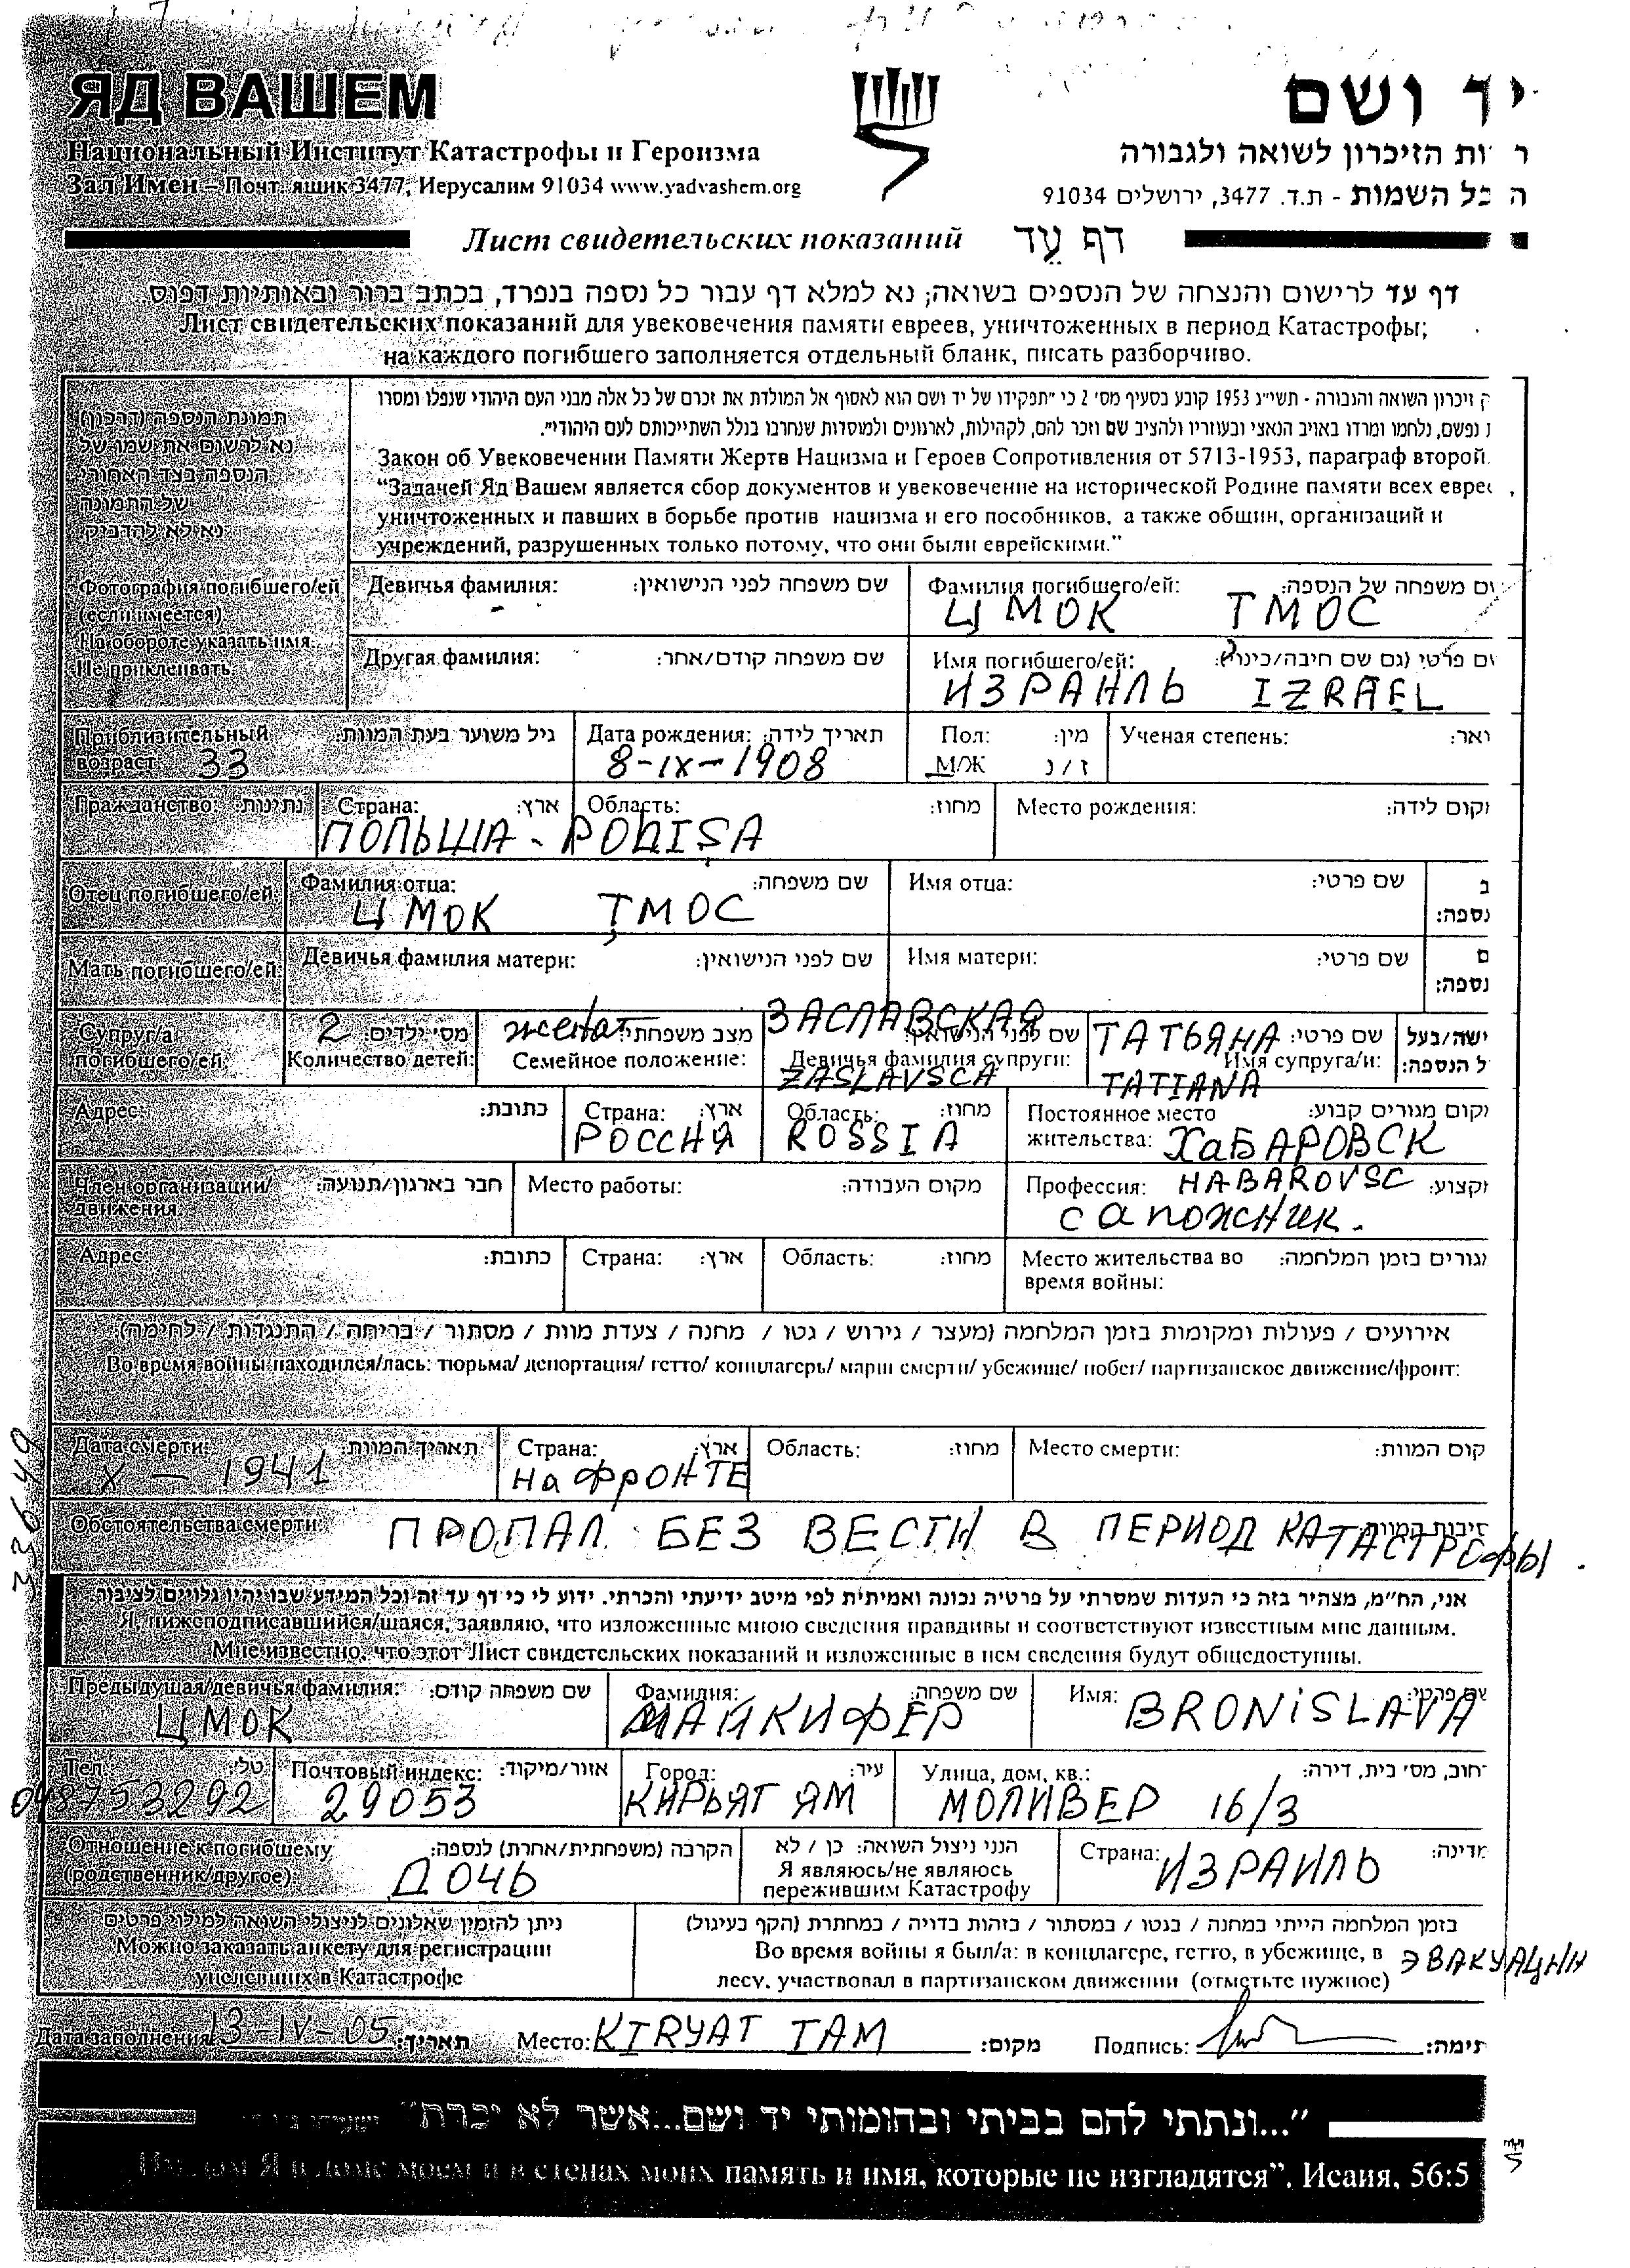 ЯД ВАШЕМ
יד ושם
Национальный Институт Катастрофы и Героизма
ר ות הזיכרון לשואה ולגבורה
Зал Имен – Почт. ящик 3477, Иерусалим 91034 www.yadvashem.org
ה כל השמות - ת.ד. 3477, ירושלים 91034
Лист свидетельских показаний דף עֵד
דף עד לרישום והנצחה של הנספים בשואה; נא למלא דף עבור כל נספה בנפרד, בכתב ברור ובאותיות דפוס.
Лист свидетельских показаний для увековечения памяти евреев, уничтоженных в период Катастрофы;
на каждого погибшего заполняется отдельный бланк, писать разборчиво.
תמונת הנספה (דרכון)
נא לרשום את שמו של
הנספה בצד האחורי
של התמונה
נא לא להדביק
Фотография погибшего/ей
(если имеется)
На обороте указать имя.
Не приклеивать.
ק זיכרון השואה והגבורה - תשי״ג 1953 קובע בסעיף מס׳ 2 כי ״תפקידו של יד ושם הוא לאסוף אל המולדת את זכרם של כל אלה מבני העם היהודי שנפלו ומסרו
ת נפשם, נלחמו ומרדו באויב הנאצי ובעוזריו ולהציב שם וזכר להם, לקהילות, לארגונים ולמוסדות שנחרבו בגלל השתייכותם לעם היהודי״.
Закон об Увековечении Памяти Жертв Нацизма и Героев Сопротивления от 5713-1953, параграф второй.
“Задачей Яд Вашем является сбор документов и увековечение на исторической Родине памяти всех евре ,
уничтоженных и павших в борьбе против нацизма и его пособников, а также общин, организаций и
учреждений, разрушенных только потому, что они были еврейскими.”
Девичья фамилия: שם משפחה לפני הנישואין: Фамилия погибшего/ей: ום משפחה של הנספה:
- ЦМОК TMOC
Другая фамилия: שם משפחה קודם/אחר: Имя погибшего/ей: ום פרטי (גם שם חיבה/כינוי):
ИЗРАИЛЬ IZRAEL
Приблизительный גיל משוער בעת המוות: Дата рождения: תאריך לידה: Пол: מין: Ученая степень: ואר:
возраст: 33 8-IX-1908 М/Ж ז / נ
Гражданство: נתינות: Страна: ארץ: Область: מחוז: Место рождения: וקום לידה:
ПОЛЬША - POLIŞA
Отец погибшего/ей: Фамилия отца: שם משפחה: Имя отца: שם פרטי: ב
ЦМОК ŢMOC נספה:
Мать погибшего/ей: Девичья фамилия матери: שם לפני הנישואין: Имя матери: שם פרטי: ם
נספה:
Супруг/а 2 מס׳ ילדים: женат מצב משפחתי: ЗАСЛАВСКАЯ שם לפני הנישואין: ТАТЬЯНА שם פרטי: ישה/בעל
погибшего/ей: Количество детей: Семейное положение: Девичья фамилия супруги: Имя супруга/и: ל הנספה:
ZASLAVSCA TATIANA
Адрес: כתובת: Страна: ארץ: Область: מחוז: Постоянное место וקום מגורים קבוע:
РОССИЯ ROSSIA жительства: ХаБАРОВСК
Член организации/ חבר בארגון/תנועה: Место работы: מקום העבודה: Профессия: HABAROVSC וקצוע:
движения: сапожник.
Адрес: כתובת: Страна: ארץ: Область: מחוז: Место жительства во וגורים בזמן המלחמה:
время войны:
אירועים / פעולות ומקומות בזמן המלחמה (מעצר / גירוש / גטו / מחנה / צעדת מוות / מסתור / בריחה / התנגדות / לחימה)
Во время войны находился/лась: тюрьма/ депортация/ гетто/ концлагерь/ марш смерти/ убежище/ побег/ партизанское движение/фронт:
Дата смерти: תאריך המוות: Страна: ארץ: Область: מחוז: Место смерти: קום המוות:
X — 1941 На фРОНТЕ
33649
Обстоятельства смерти: ПРОПАЛ БЕЗ ВЕСТИ В ПЕРИОД КАТАСТРОфЫ
סיבות המוות:
אני, הח״מ, מצהיר בזה כי העדות שמסרתי על פרטיה נכונה ואמיתית לפי מיטב ידיעתי והכרתי. ידוע לי כי דף עד זה וכל המידע שבו יהיו גלויים לציבור.
Я, нижеподписавшийся/шаяся, заявляю, что изложенные мною сведения правдивы и соответствуют известным мне данным.
Мне известно, что этот Лист свидетельских показаний и изложенные в нем сведения будут общедоступны.
Предыдущая/девичья фамилия: שם משפחה קודם: Фамилия: שם משפחה: Имя: שם פרטי:
ЦМОК МАЙКИФЕР BRONISLAVA
Тел. טל׳: Почтовый индекс: אזור/מיקוד: Город: עיר: Улица, дом, кв.: רחוב, מס׳ בית, דירה:
048753292 29053 КИРЬЯТ ЯМ МОЛИВЕР 16/3
Отношение к погибшему הקרבה (משפחתית/אחרת) לנספה: הנני ניצול השואה: כן / לא Страна: מדינה:
(родственник/другое): ДОЧЬ Я являюсь/не являюсь ИЗРАИЛЬ
пережившим Катастрофу
ניתן להזמין שאלונים לניצולי השואה למילוי פרטים
Можно заказать анкету для регистрации
уцелевших в Катастрофе
בזמן המלחמה הייתי במחנה / בגטו / במסתור / בזהות בדויה / במחתרת (הקף בעיגול)
Во время войны я был/а: в концлагере, гетто, в убежище, в ЭВАКУАЦИИ
лесу, участвовал в партизанском движении (отметьте нужное)
Дата заполнения 13-IV-05 תאריך: Место: KIRYAT IAM מקום: Подпись: תימה:
״...ונתתי להם בביתי ובחומותי יד ושם...אשר לא יכרת״
Им дам Я в доме моем и в стенах моих память и имя, которые не изгладятся”. Исаия, 56:5